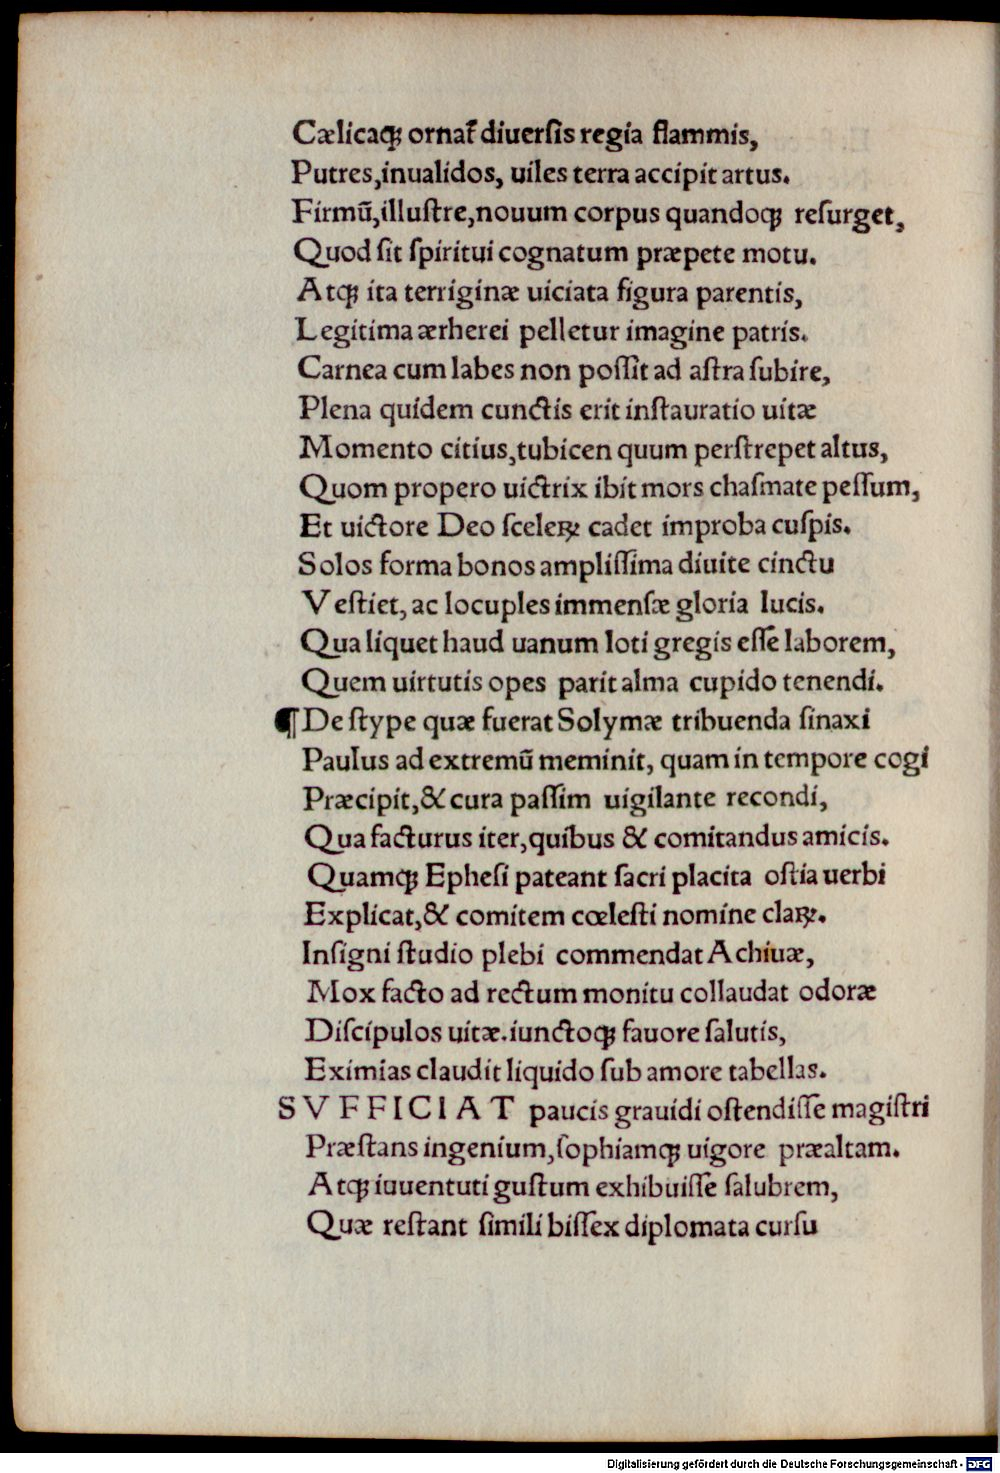 Cælicaqꝫ ornat᷑ diuerſis regia flammis,
Putres,inualidos, uiles terra accipit artus.
Firmũ,illuſtre,nouum corpus quandoqꝫ reſurget,
Quod ſit ſpiritui cognatum præpete motu.
Atqꝫ ita terriginæ uiciata figura parentis,
Legitima ærherei pelletur imagine patris.
Carnea cum labes non poſſit ad aſtra ſubire,
Plena quidem cunctis erit inſtauratio uitæ
Momento citius,tubicen quum perſtrepet altus,
Quom propero uictrix ibit mors chaſmate peſſum,
Et uictore Deo ſceleꝝ cadet improba cuſpis.
Solos forma bonos ampliſſima diuite cinctu
Veſtiet, ac locuples immenſæ gloria lucis.
Qua liquet haud uanum loti gregis eſſe laborem,
Quem uirtutis opes parit alma cupido tenendi.
¶De ſtype quæ fuerat Solymæ tribuenda ſinaxi
Paulus ad extremũ meminit, quam in tempore cogi
Præcipit,& cura paſſim uigilante recondi,
Qua facturus iter,quibus & comitandus amicis.
Quamqꝫ Epheſi pateant ſacri placita oſtia uerbi
Explicat,& comitem cœleſti nomine claꝝ.
Inſigni ſtudio plebi commendat Achiuæ,
Mox facto ad rectum monitu collaudat odoræ
Diſcipulos uitæ.iunctoqꝫ fauore ſalutis,
Eximias claudit liquido ſub amore tabellas.
SVFFICIAT paucis grauidi oſtendiſſe magiſtri
Præſtans ingenium,ſophiamqꝫ uigore præaltam.
Atqꝫ iuuentuti guſtum exhibuiſſe ſalubrem,
Quæ reſtant ſimili biſſex diplomata curſu
Digitalisierung gefördert durch die Deutsche Forschungsgemeinschaft - DFG